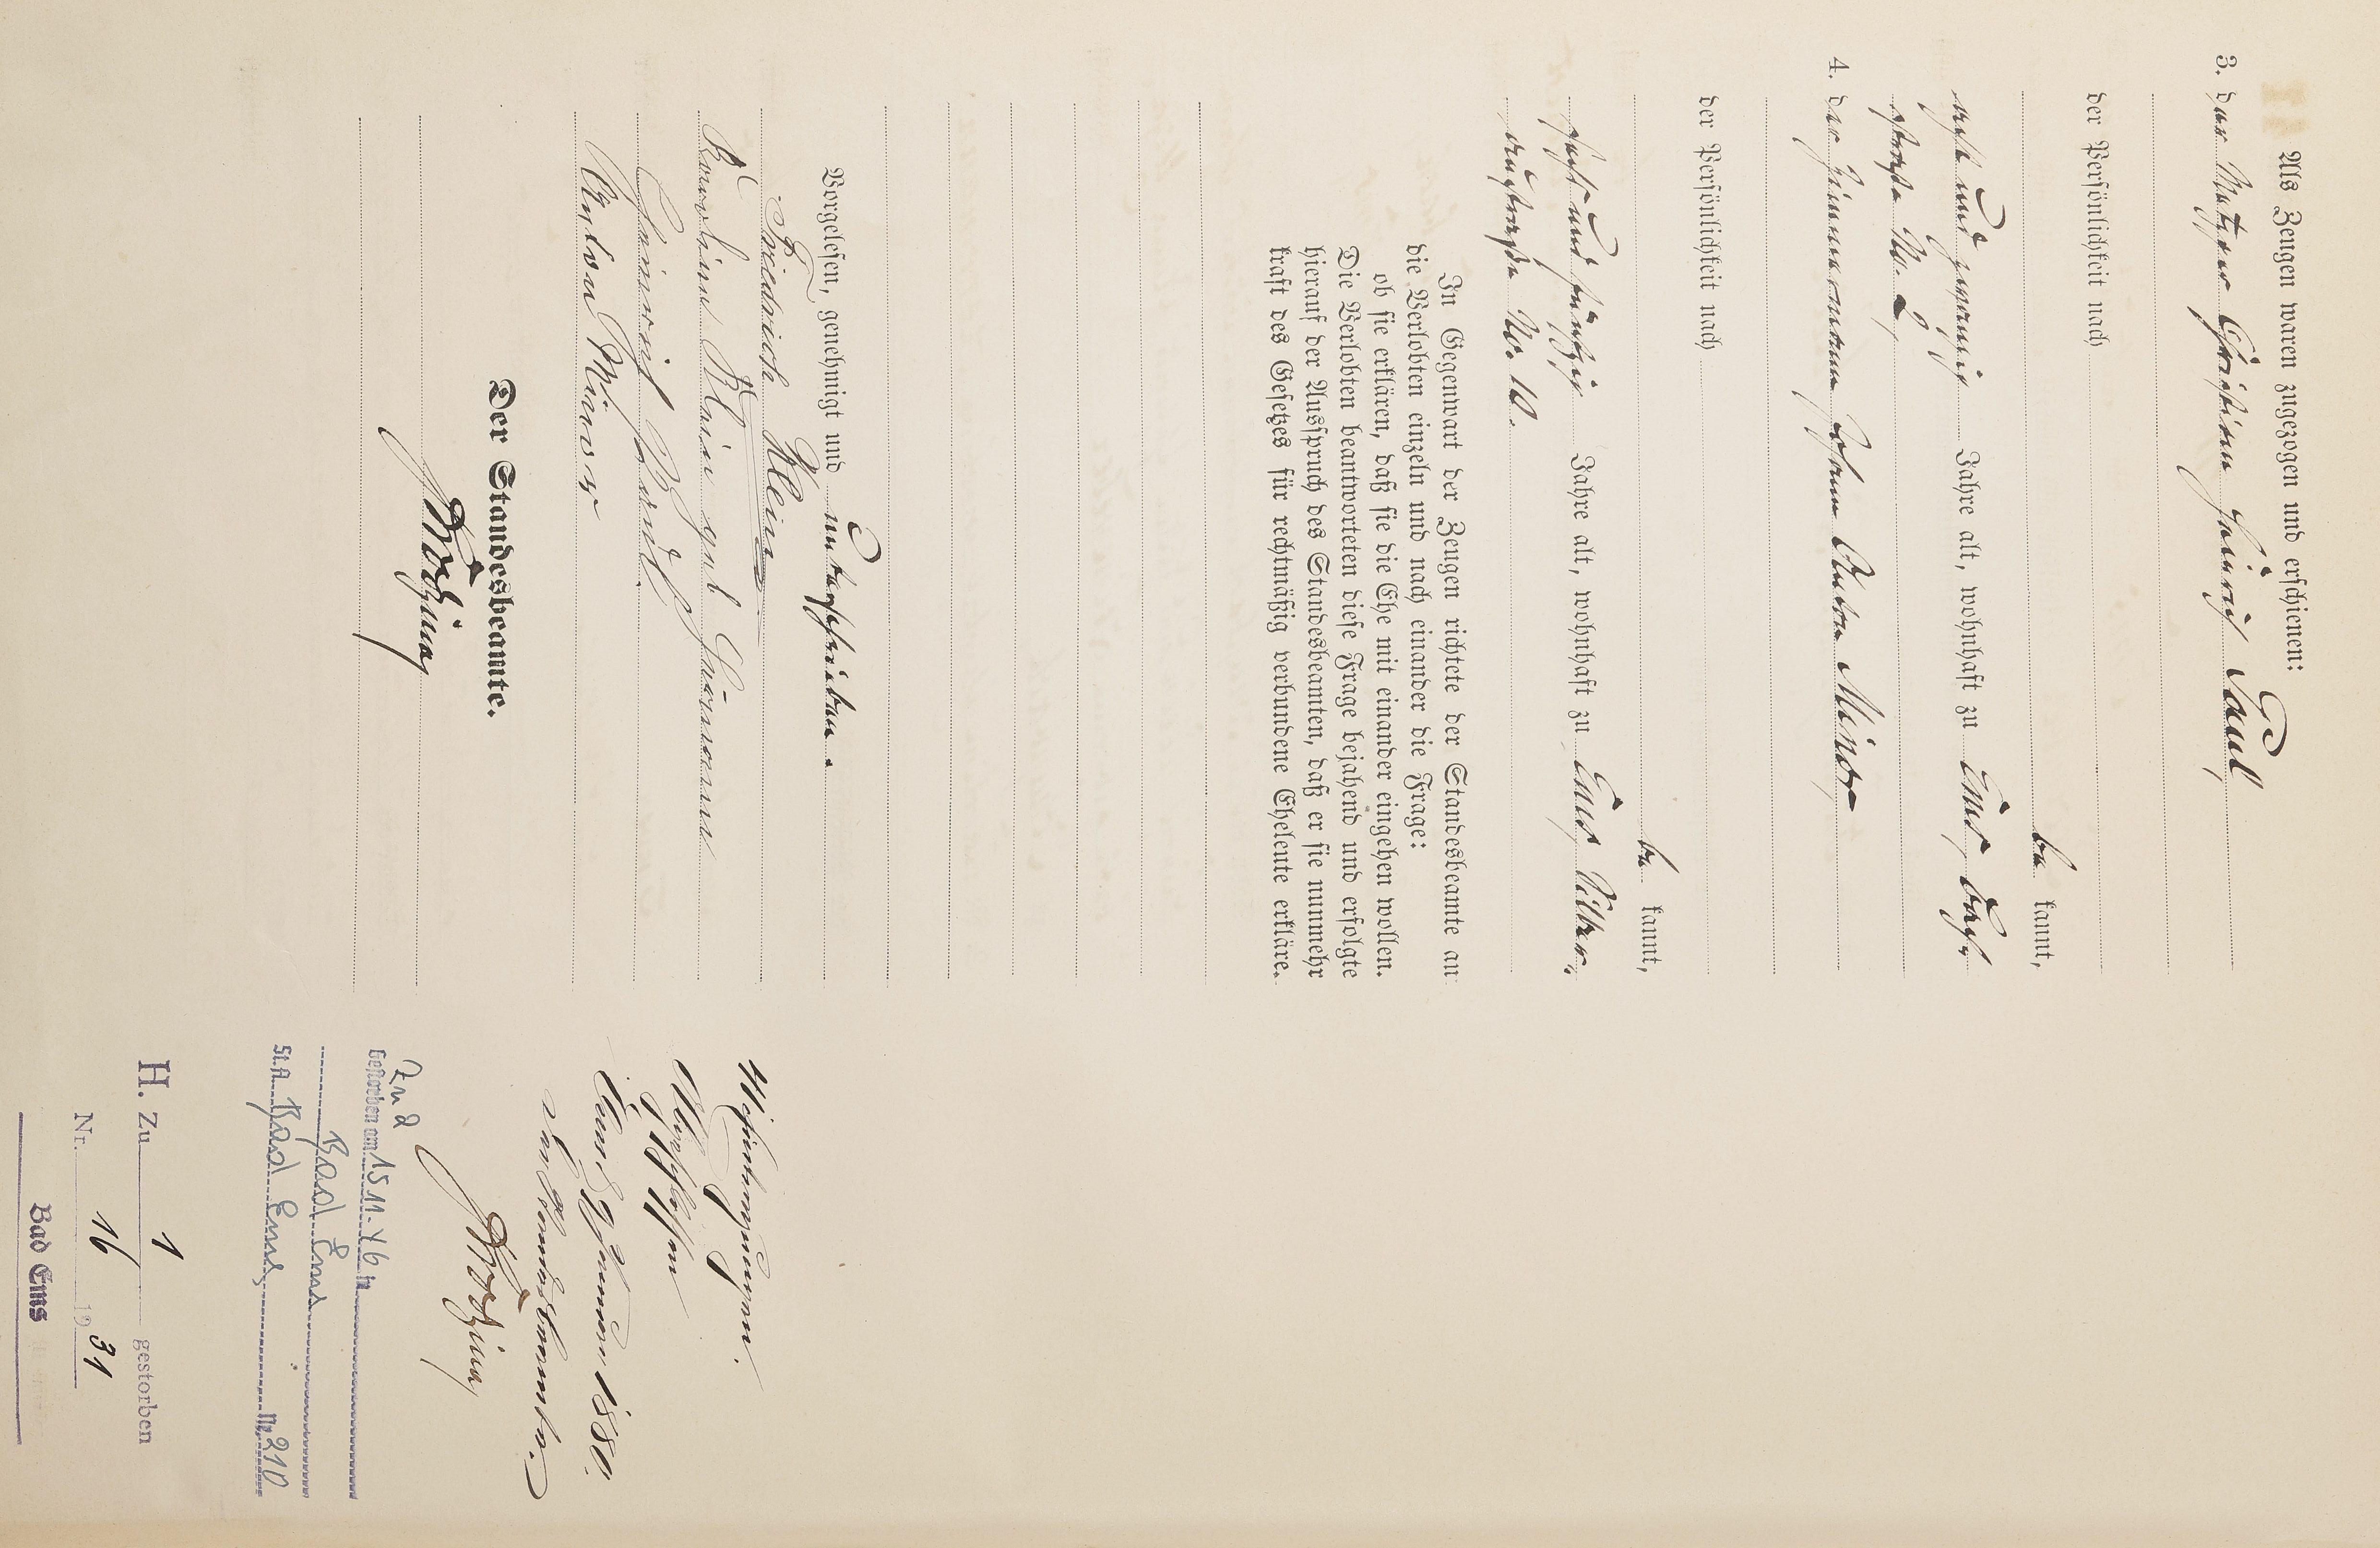 Als Zeugen waren zugezogen und erschienen:
3. der Metzger Christian Heinrich Paul,
der Persönlichkeit nach
be kannt,
acht und zwanzig Jahre alt, wohnhaft zu Ems, Bach-
straße No. 2,
4. der Zimmermann Johann Anton Minor
der Persönlichkeit nach
be kannt,
fünfzig Jahre alt, wohnhaft zu Ems,
straße No. 10.
In Gegenwart der Zeugen richtete der Standesbeamte an
die Verlobten einzeln und nach einander die Frage:
ob sie erklären, daß sie die Ehe mit einander eingehen wollen.
Die Verlobten beantworteten diese Frage bejahend und erfolgte
hierauf der Ausspruch des Standesbeamten, daß er sie nunmehr
kraft des Gesetzes für rechtmäßig verbundene Eheleute erkläre.
Vorgelesen, genehmigt und unterschrieben.
Friedrich Klein
Karolin Klein geb
Heinrich Paul
Anton Minor
Der Standesbeamte.
Übereinstimmung
Ems 1880.
Der Standesbeamte.
Zu 2
Gestorben am 15.11.46 in
Bad Ems
St.A Bad Ems Nr. 210
H. Zu 1 gestorben
Nr. 16 1931
Bad Ems